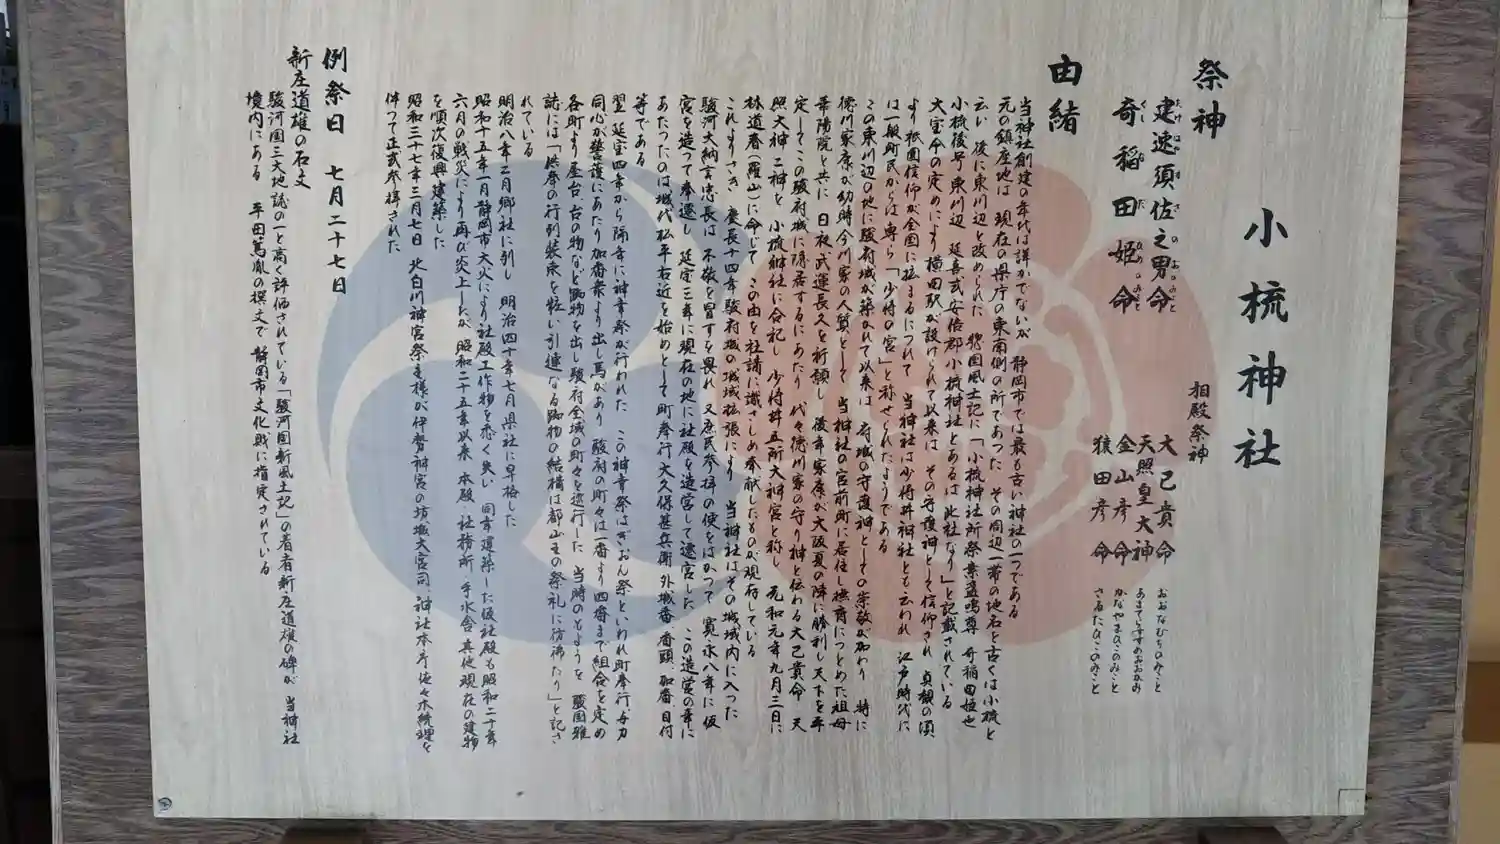 小梳神社
祭神
建速須佐之男命
奇稲田姫命
相殿祭神
大己貴命 おおなむちのみこと
天照皇大神 あまてらすすめおおかみ
金山彦命 かなやまひこのみこと
猿田彦命 さるたひこのみこと
由緒
当神社創建の年代は詳かでないが 静岡市では最も古い神社の一つである
元の鎮座地は 現在の県庁の東南側の所であった その周辺一帯の地名を古くは小梳と
云い 後に東川辺と改められた 惣国風土記に「小梳神社所祭素盞嗚尊 奇稲田姫也
小梳後号東川辺 延喜式安倍郡小梳神社とあるは此社なり」と記載されている
大宝令の定めにより 横田駅が設けられて以来は その守護神として信仰され 貞観の頃
より祇園信仰が全国に拡まるにつれて 当神社は少将井神社とも云われ 江戸時代に
は一般町民からは専ら「少将の宮」と称せられたようである
この東川辺の地に駿府城が築かれて以来は 府城の守護神としての崇敬が加わり 特に
徳川家康が幼時今川家の人質として 当神社の宮前町に居住し撫育につとめた祖母
華陽院と共に 日夜武運長久を祈願し 後年家康が大阪夏の陣に勝利し天下を平
定してこの駿府城に隠居するにあたり 代々徳川家の守り神と伝わる大己貴命 天
照大神二神を 小梳神社に合祀し 少将井五所大神宮と称し 元和元年九月三日に
林道春(羅山)に命じて この由を社譜に識さしめ奉献したものが現存している
これよりさき 慶長十四年駿府城の城域拡張により 当神社はその城域内に入った
駿河大納言忠長は 不敬を冒すを畏れ 又庶民参拝の便をはかって 寛永八年に仮
宮を造って奉遷し 延宝三年に現在の地に社殿を造営して遷宮した この造営の幸に
あたったのは城代松平右近を始めとして町奉行大久保甚兵衛 外、城番 番頭、加番、目付
等である
翌 延宝四年から隔年に神幸祭が行われた この神幸祭はぎおん祭といわれ町奉行、与力
同心が警護にあたり加番衆より出し馬があり 駿府の町々は一番より四番まで組合を定め
各町より屋台、台の物など踟物を出し駿府全域の町々を巡行した 当時のもようを 駿国雅
誌には「供奉の行列装束を粧い引連なる踟物の結構は都山王の祭礼に彷沸たり」と記さ
れている
明治八年二月郷社に列し 明治四十年七月県社に昇格した
昭和十五年一月静岡市大火により社殿工作物を悉く失い 同年建築した仮社殿も昭和二十年
六月の戦災により再び炎上したが 昭和二十五年以来 本殿・社務所・手水舎 其他現在の建物
を順次復興建築した
昭和三十七年三月七日 北白川神宮祭主様が伊勢神宮の坊城大宮司、神社本庁佐々木統理を
伴って正式参拝された
例祭日 七月二十七日
新庄道雄の石文
駿河国三大地誌の一と高く評価されている「駿河国新風土記」の著者新庄道雄の碑が 当神社
境内にある 平田篤胤の撰文で静岡市文化財に指定されている